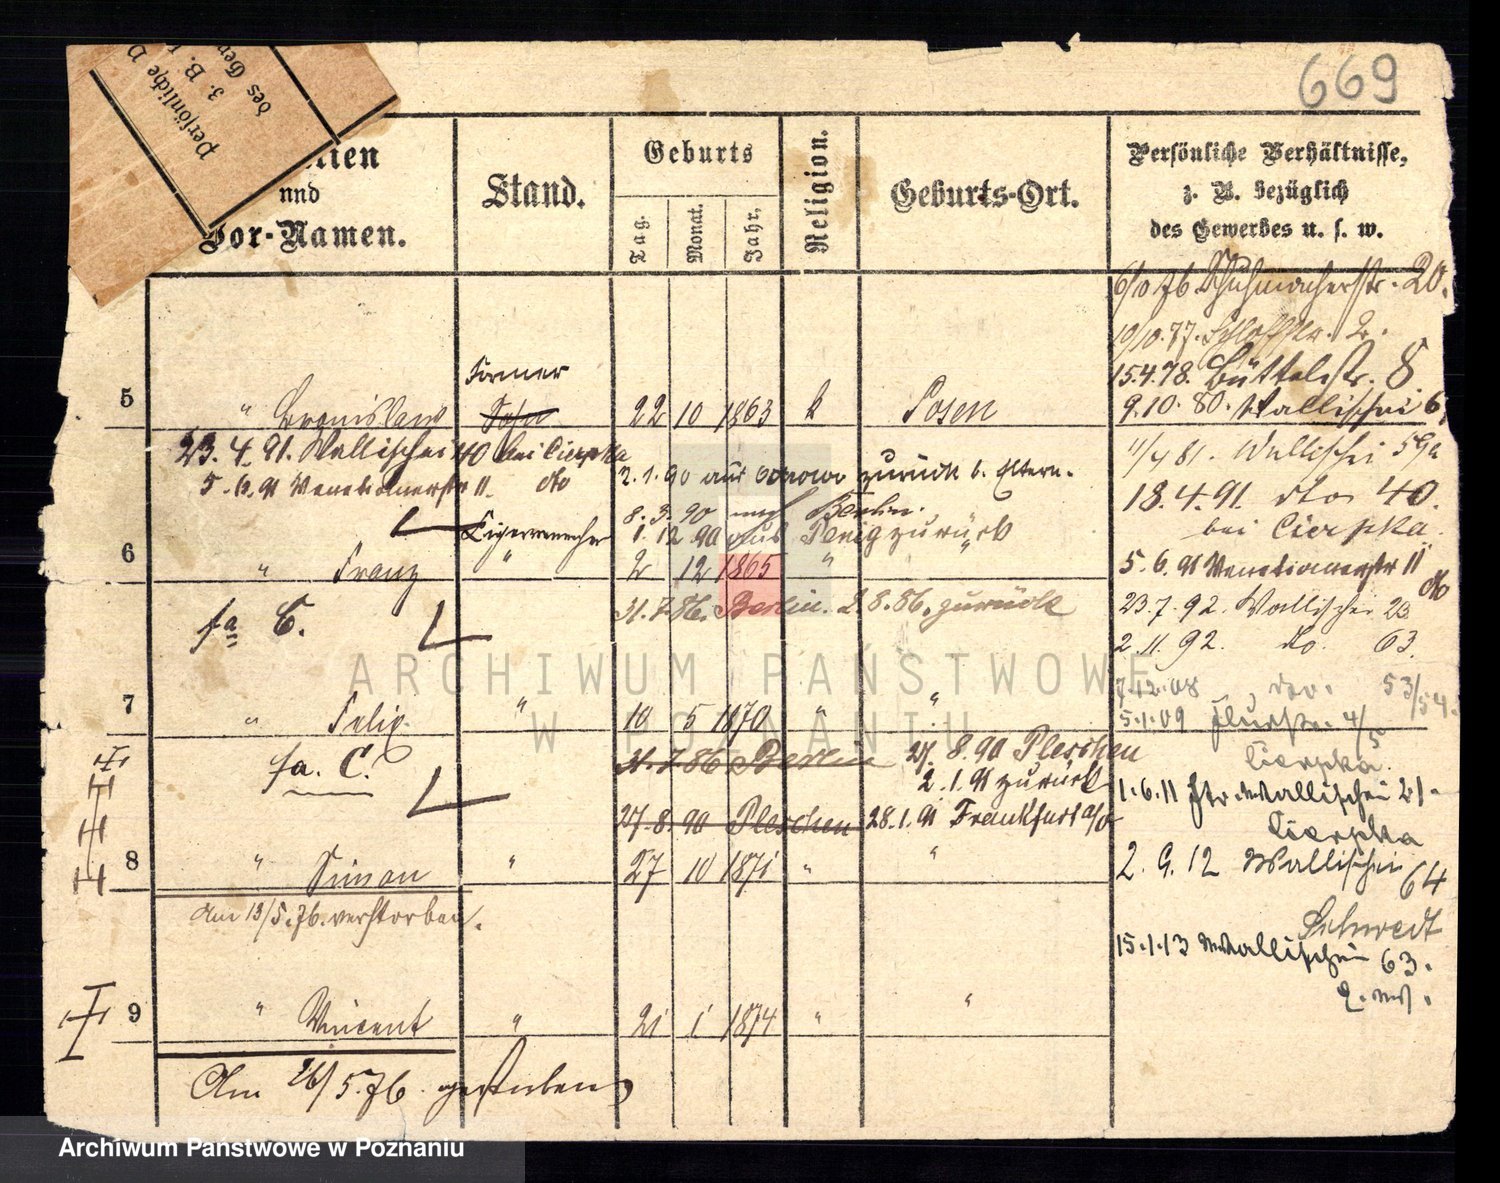 669
Persönliche V
z. B.
des Gew
Namen
und
Vor-Namen.
Stand.
Geburts
Tag.
Monat.
Jahr.
Religion.
Geburts-Ort.
Persönliche Verhältnisse,
z. B. bezüglich
des Gewerbes u. s. w.
6/10 76. Schuhmacherstr. 20.
10/10. 77. Schloßstr. 2.
15.4.78. Büttelstr. 8.
9.10.80. Wallischei 6
11/4 81. Wallischei 59a
18.4.91. dto 40.
bei Cierpka.
5.6.91 Venetianerstr 11
do
23.7.92. Wallischei 23
2.11.92. do. 63.
7.12.08 do. 53/54.
5.1.09 Flurstr. 4/5
Cierpka.
1.6.11 Wallischei 21.
Cierpka
2.9.12 Wallischei 64
Schwedt
15.1.13 Wallischei 63.
Former
5 " Bronislaw 22 10 1863 k Posen
23.4.91. Wallischei 40 bei Cierpka
5.6.91 Venetianerstr 11. do
2.1.90 aus zurück b. Eltern.
8.3.90 nach Berlin.
1.12 90 aus Penig zurück
Cigarrenmacher
6 " Franz " 2 12 1865 " "
fa C.
31.7.86. Berlin. 2.8.86. zurück
7 " Felix " 10 5 1870 " "
fa. C.
31.7.86 Berlin
27.8.90 Pleschen
2.1.91 zurück
27.8.90 Pleschen
28.1.91 Frankfurt a/O
8 " Simon " 27 10 1871 " "
Am 13/5.76. verstorben.
9 " Vincent " 21 1 1874 " "
Am 26/5.76. gestorben
ARCHIWUM PAŃSTWOWE
W POZNANIU
Archiwum Państwowe w Poznaniu